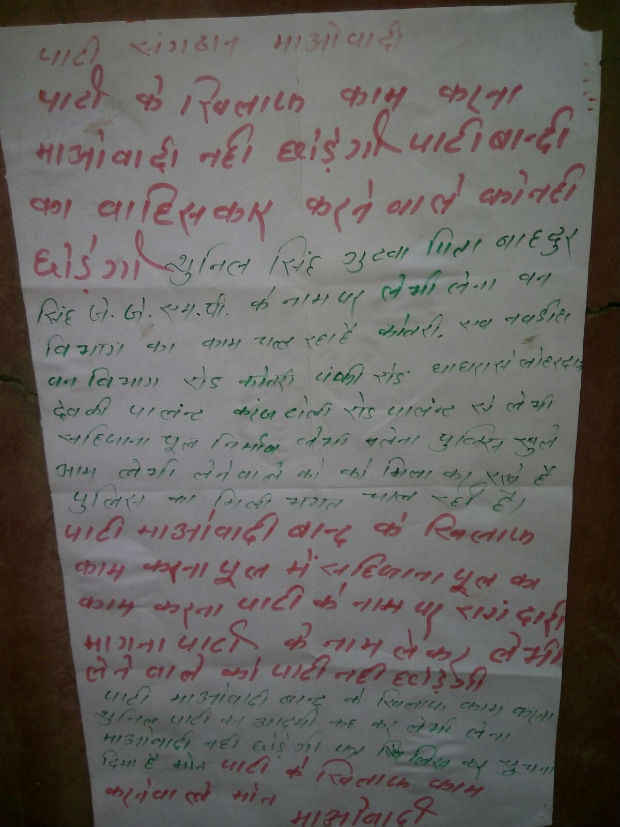 पार्टी संगठन माओवादी
पार्टी के खिलाफ काम करना
माओवादी नही छोड़ेगी पार्टी बान्दी
का वाहिसकार करने वाले को नही
छोड़ेगी सुनिल सिंह गुटवा पिता बाहदुर
सिंह जे. जे. एम. पी. के नाम पर लेभी लेना वन
विभाग का काम चल रहा है
वन विभाग रोड रोड
रोड पालंन्ट से लेभी
पूल निर्माण लेभी पुलिस खुले
आम लेभी लेने वाले को को मिला कर रखे है
पुलिस का मिली भगत चल रही है।
पार्टी माओवादी बान्द के खिलाफ
काम करना पूल में सहियाना पूल का
काम करना पार्टी के नाम पर रंगदारी
मागना पार्टी के नाम लेकर लेभी
लेने वाले को पार्टी नही छोड़ेगी
पार्टी माओवादी बान्द के खिलाफ काम करना
सुनिल पार्टी का आदमी कह कर लेभी लेना
माओवादी नही छोड़ेगी लिख कर सुचना
दिया है पार्टी के खिलाफ काम
करनेवाले मौत
माओवादी